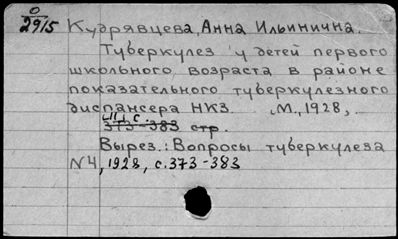 0
2915
Кудрявцева, Анна Ильинична.
Туберкулез у детей первого
школьного возраста в районе
показательного туберкулезного
диспансера НКЗ. М., 1928,
373-383 стр.
Вырез.: Вопросы туберкулеза
N4, 1928, с. 373-383